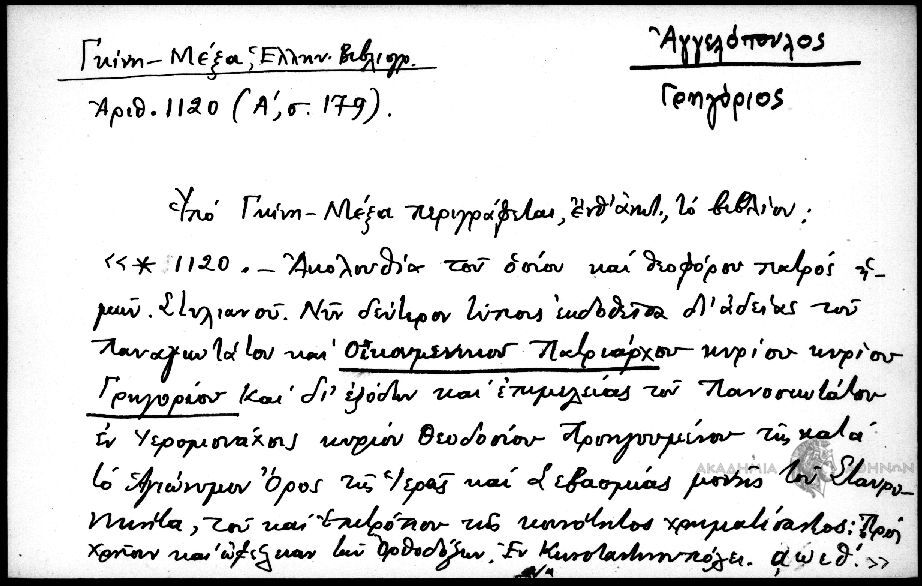 Γκίνη - Μέξα, Ἑλλην. Βιβλιογρ.
Ἀγγελόπουλος
Ἀριθ. 1120 (Α', σ. 179).
Γρηγόριος
Ὑπὸ Γκίνη - Μέξα περιγράφεται, ἔνθ' ἀνωτ., τὸ βιβλίον:
«* 1120. - Ἀκολουθία τοῦ ὁσίου καὶ θεοφόρου πατρὸς ἡ-
μῶν Στυλιανοῦ. Νῦν δεύτερον τύποις ἐκδοθεῖσα δι' ἀδείας τοῦ
Παναγιωτάτου καὶ Οἰκουμενικοῦ Πατριάρχου κυρίου κυρίου
Γρηγορίου καὶ δι' ἐξόδων καὶ ἐπιμελείας τοῦ Πανοσιωτάτου
ἐν Ἱερομονάχοις κυρίου Θεοδοσίου Προηγουμένου τῆς κατὰ
τὸ Ἁγιώνυμον Ὄρος τῆς Ἱερᾶς καὶ Σεβασμίας μονῆς τοῦ Σταυρο-
νικήτα, τοῦ καὶ Ἐπιτρόπου τῆς κοινότητος χρηματίσαντος: Πρὸς
χρῆσιν καὶ ὠφέλειαν τῶν Ὀρθοδόξων. Ἐν Κωνσταντινουπόλει. αωιθ'.»
ΑΚΑΔΗΜΙΑ ΑΘΗΝΩΝ